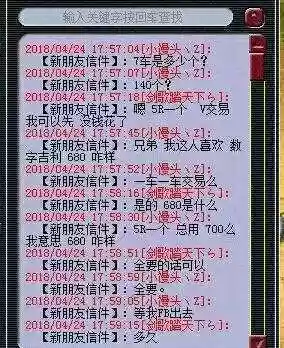 输入关键字按回车查找
2018/04/24 17:57:04[小馒头ヽZ]:
【新朋友信件】: 7车是多少个?
2018/04/24 17:57:07[小馒头ヽZ]:
【新朋友信件】: 140个?
2018/04/24 17:57:18[剑歌踏天下ら]:
【新朋友信件】: 嗯 5R一个 V交易
我可以先 没钱花了
2018/04/24 17:57:45[小馒头ヽZ]:
【新朋友信件】: 兄弟 我这人喜欢 数
字吉利 680 咋样
2018/04/24 17:57:52[小馒头ヽZ]:
【新朋友信件】: 一车一车交易么
2018/04/24 17:58:16[剑歌踏天下ら]:
【新朋友信件】: 是的 680是什么
2018/04/24 17:58:30[小馒头ヽZ]:
【新朋友信件】: 5R一个 总用 700么
我意思 680 咋样
2018/04/24 17:58:51[剑歌踏天下ら]:
【新朋友信件】: 全要的话可以
2018/04/24 17:58:59[小馒头ヽZ]:
【新朋友信件】: 全要。
2018/04/24 17:59:05[小馒头ヽZ]:
【新朋友信件】: 等我FB出去
2018/04/24 17:59:15[剑歌踏天下ら]:
【新朋友信件】: 多久